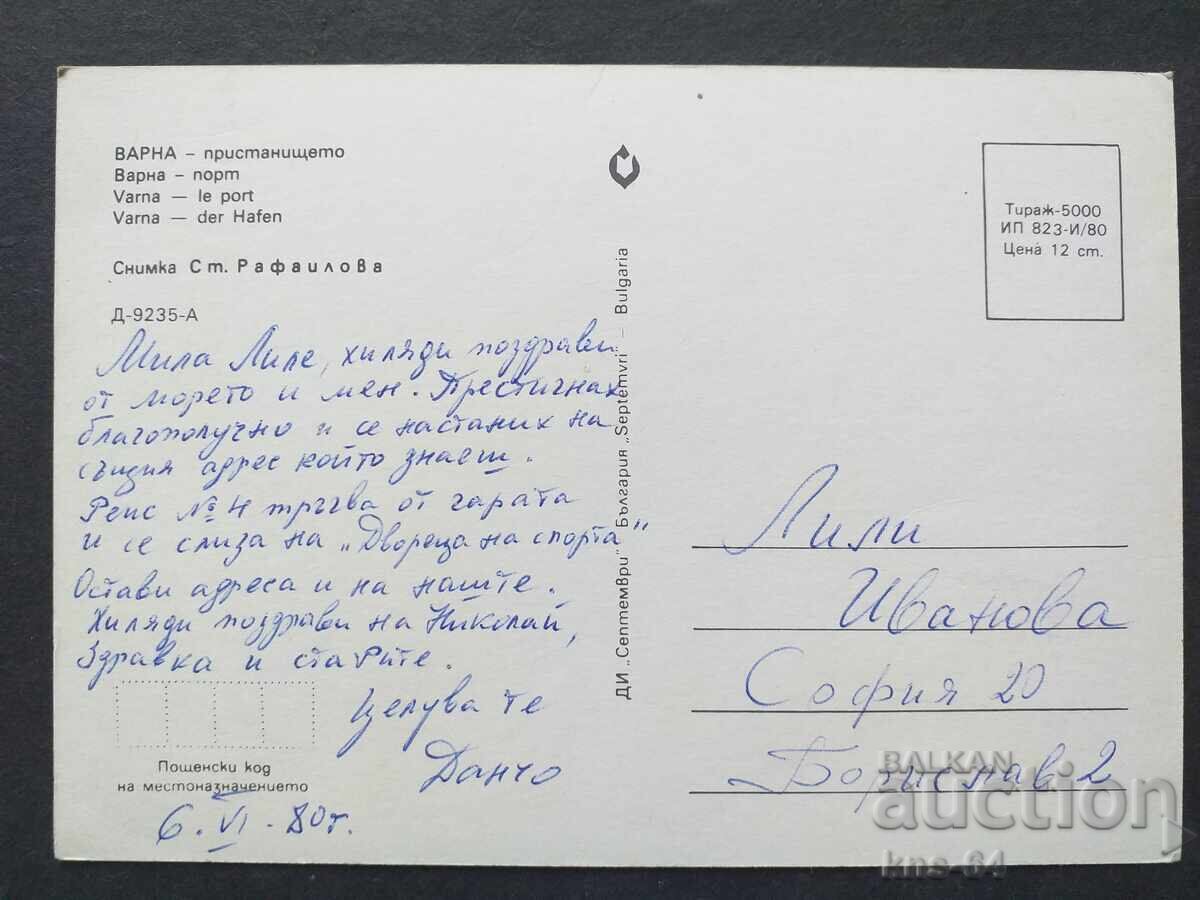 ВАРНА – пристанището
Варна – порт
Varna — le port
Varna — der Hafen
Снимка Ст. Рафаилова
Д-9235-А
Мила Лиле, хиляди поздрави
от морето и мен. Престигнах
благополучно и се настаних на
същия адрес който знаеш.
Рейс № 4 тръгва от гарата
и се слиза на „Двореца на спорта"
Остави адреса и на наште.
Хиляди поздрави на Николай,
Здравка и старите.
Целува те
Данчо
Пощенски код
на местоназначението
6. VI. 80г.
ДИ „Септември" България „Septemvri" – Bulgaria
Тираж-5000
ИП 823-И/80
Цена 12 ст.
Лили
Иванова
София 20
2
BALKAN
auction
kns-64